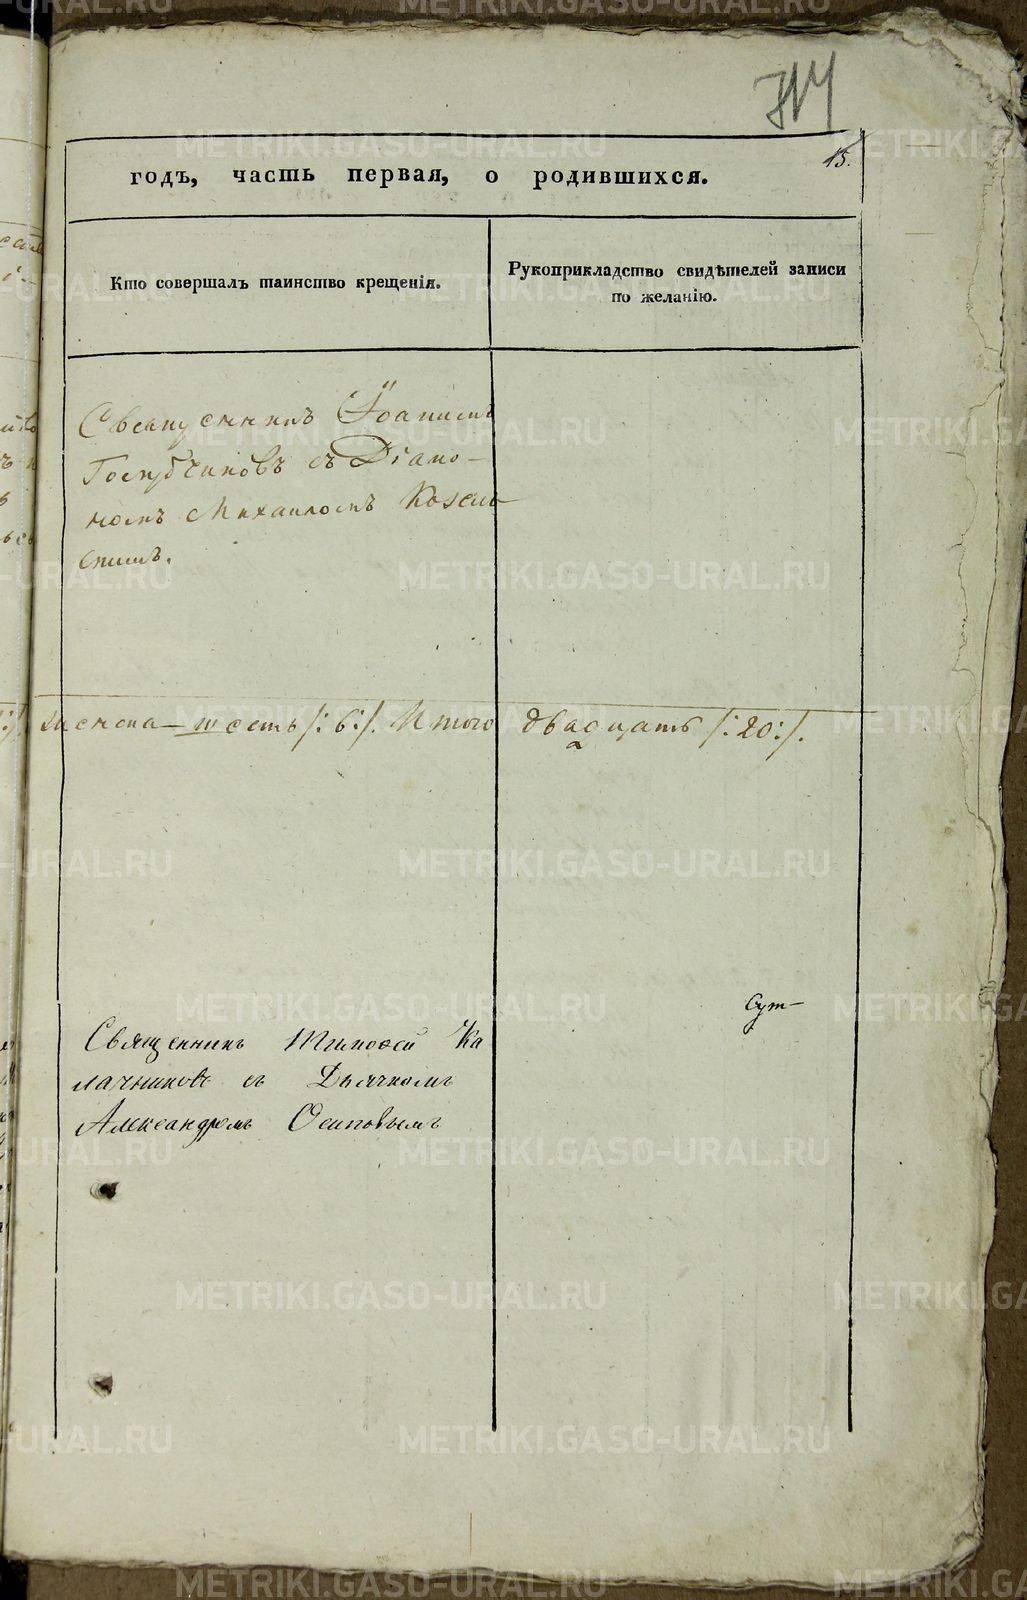 15.
годъ, часть первая, о родившихся.
Кто совершалъ таинство крещенія.
Рукоприкладство свидѣтелей записи
по желанію.
Священникъ Іоаннъ
Голубчиковъ съ Діако-
номъ Михаиломъ Козель-
скимъ.
женска — шесть /:6:/. Итого двадцать /:20:/.
Сут-
Священникъ Тимоѳей Ка
лачниковъ съ Дьячкомъ
Александромъ Осиповымъ
METRIKI.GASO-URAL.RU